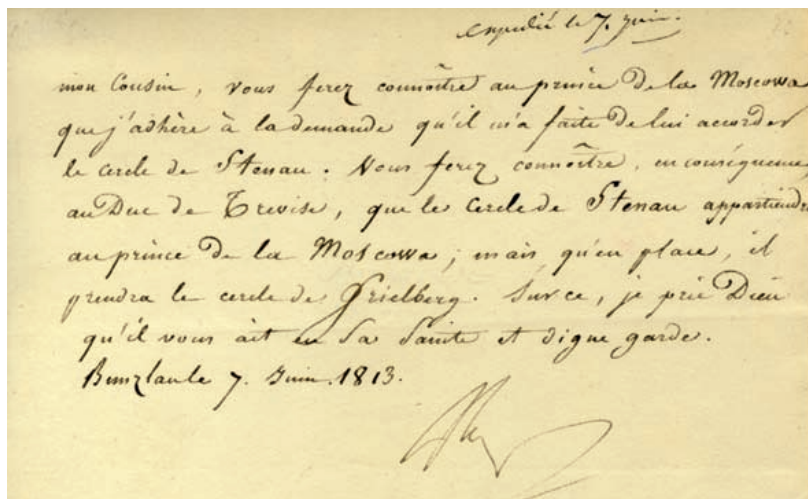 expédié le 7. juin.
mon Cousin, vous ferez connoître au prince de la Moscowa
que j'adhère à la demande qu'il m'a faite de lui accorder
le cercle de Stenau. Vous ferez connoître, en conséquence,
au Duc de Trevise, que le cercle de Stenau appartiendra
au prince de la Moscowa; mais qu'en place, il
prendra le cercle de Grielberg. Surce, je prie Dieu
qu'il vous ait en Sa Sainte et digne garde.
Bunzlau le 7. Juin. 1813.